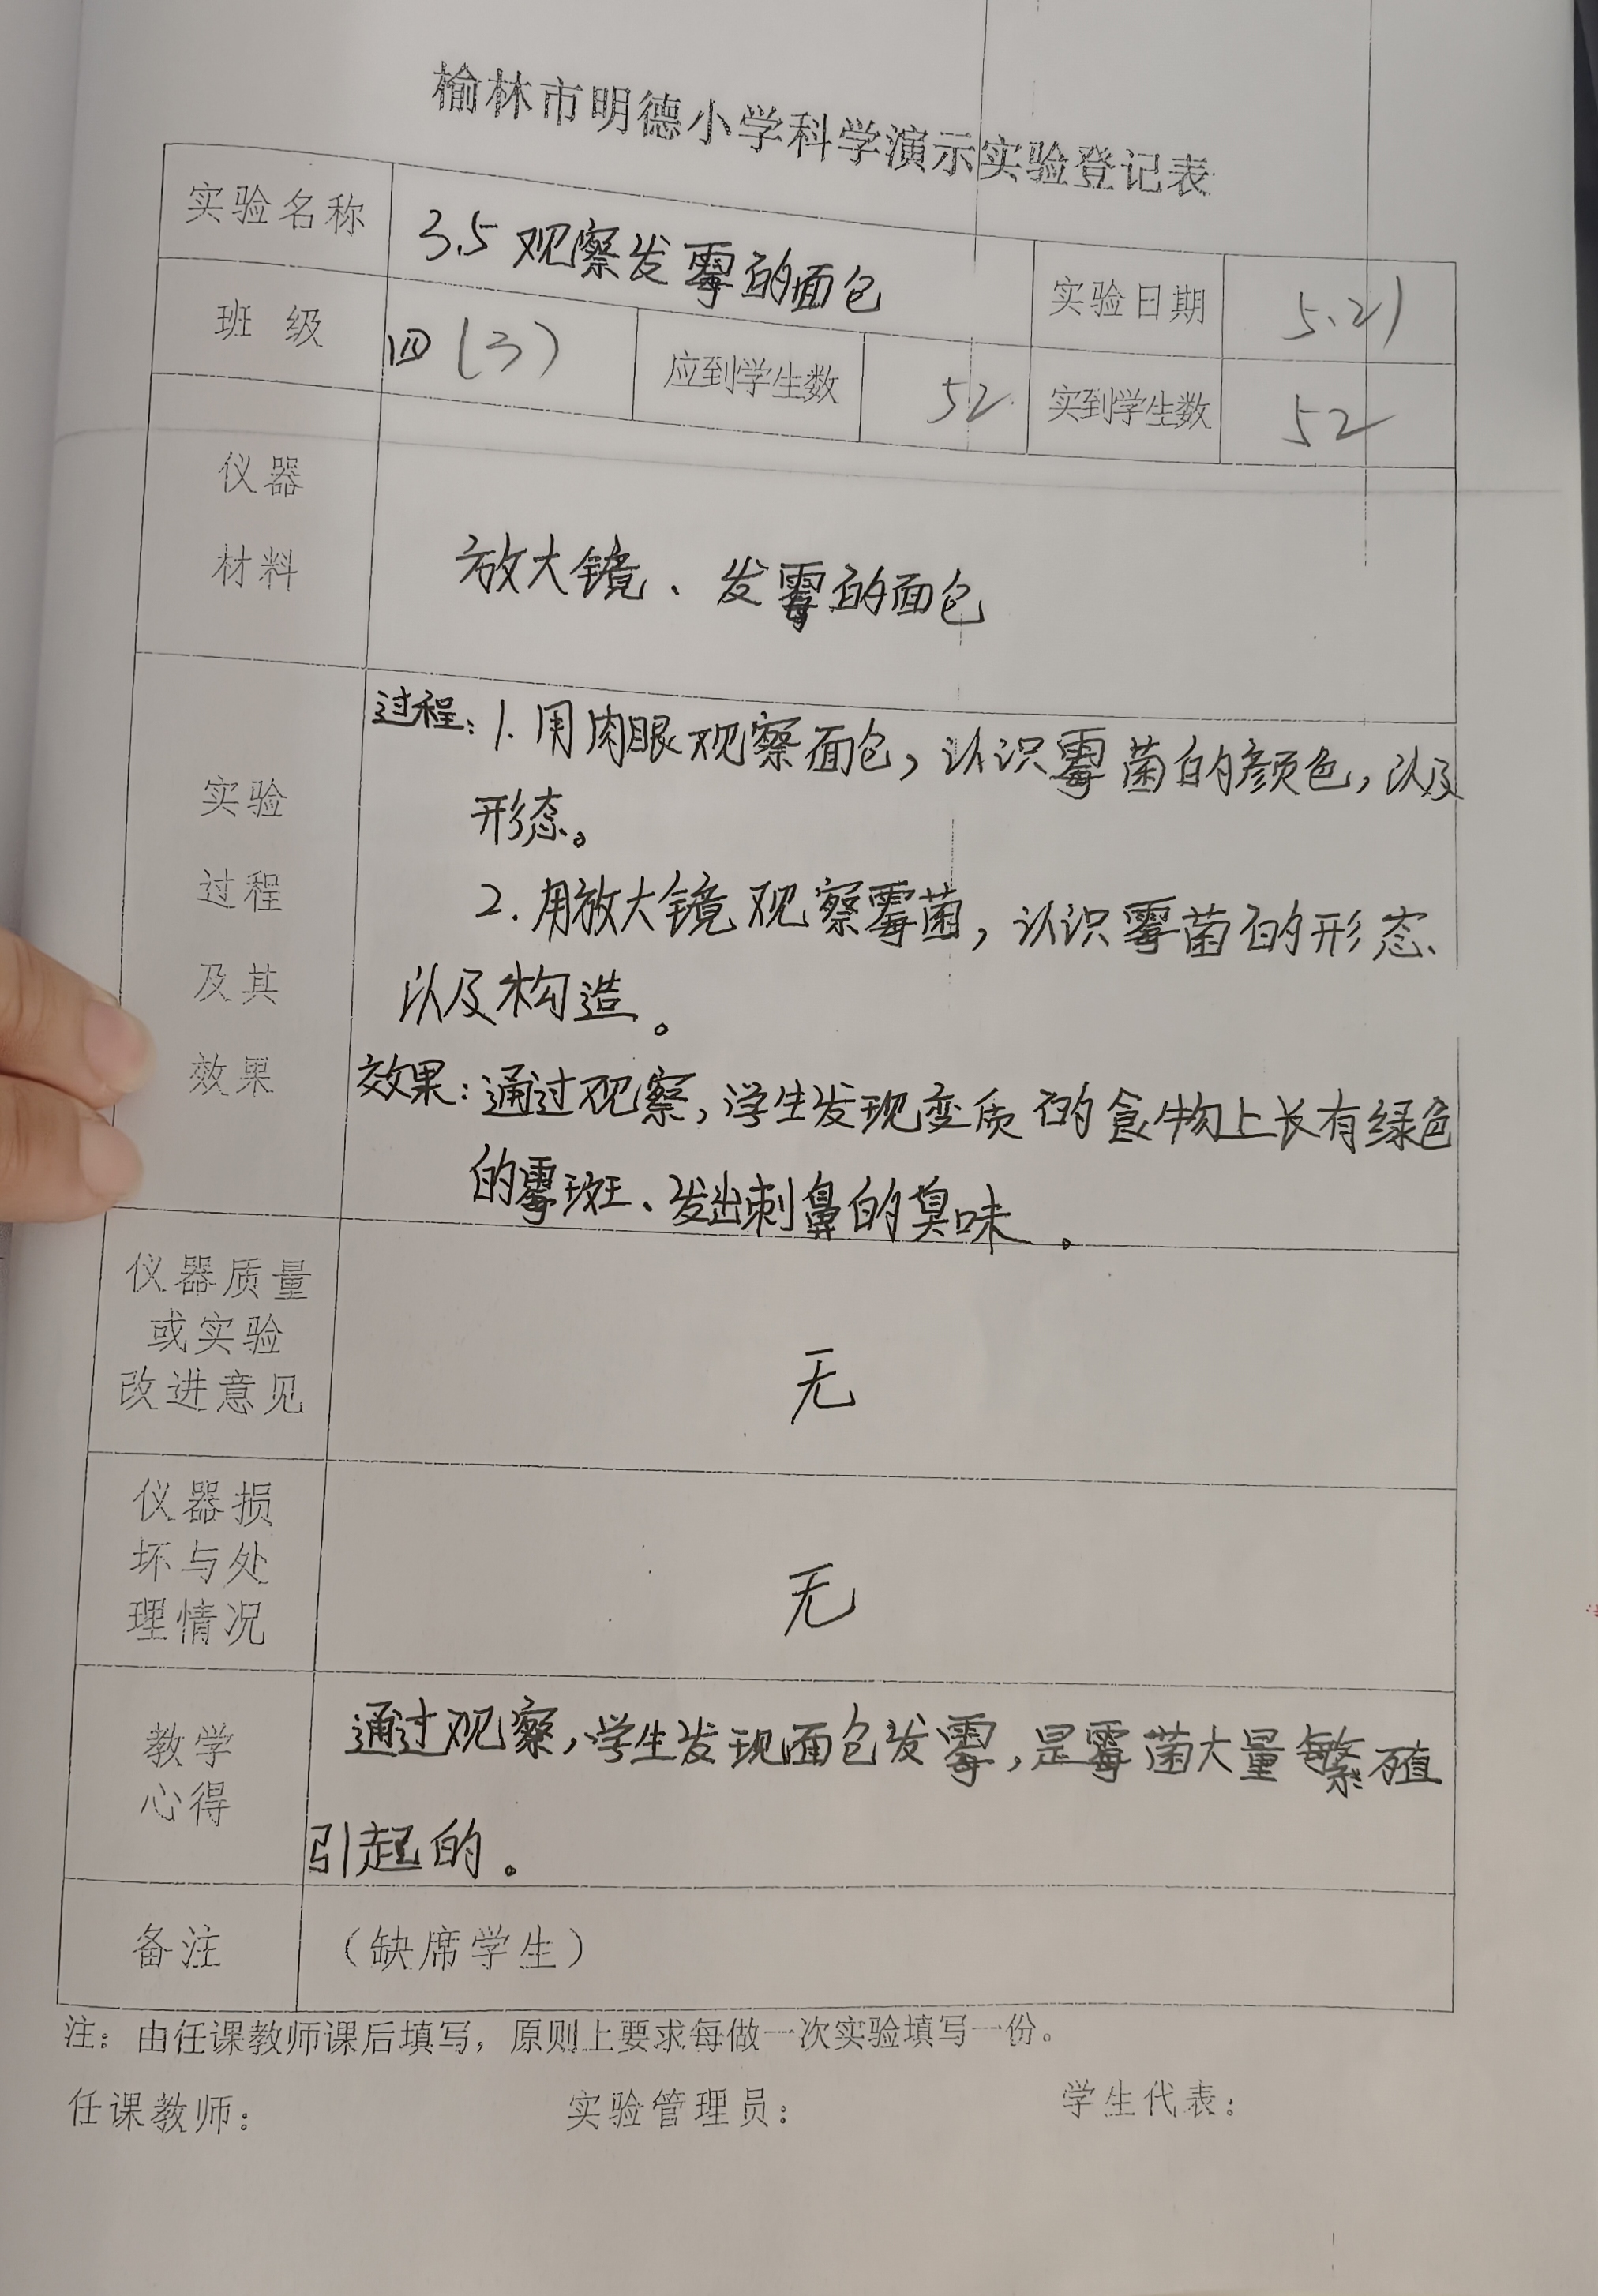 榆林市明德小学科学演示实验登记表
实验名称
3.5 观察发霉的面包
实验日期
5.21
班 级
四(3)
应到学生数
52
实到学生数
52
仪器
材料
放大镜、发霉的面包
实验
过程
及其
效果
过程:1.用肉眼观察面包,认识霉菌的颜色,以及
形态。
2.用放大镜观察霉菌,认识霉菌的形态、
以及构造。
效果:通过观察,学生发现变质的食物上长有绿色
的霉斑、发出刺鼻的臭味。
仪器质量
或实验
改进意见
无
仪器损
坏与处
理情况
无
教学
心得
通过观察,学生发现面包发霉,是霉菌大量繁殖
引起的。
备注
(缺席学生)
注:由任课教师课后填写,原则上要求每做一次实验填写一份。
任课教师: 实验管理员: 学生代表: